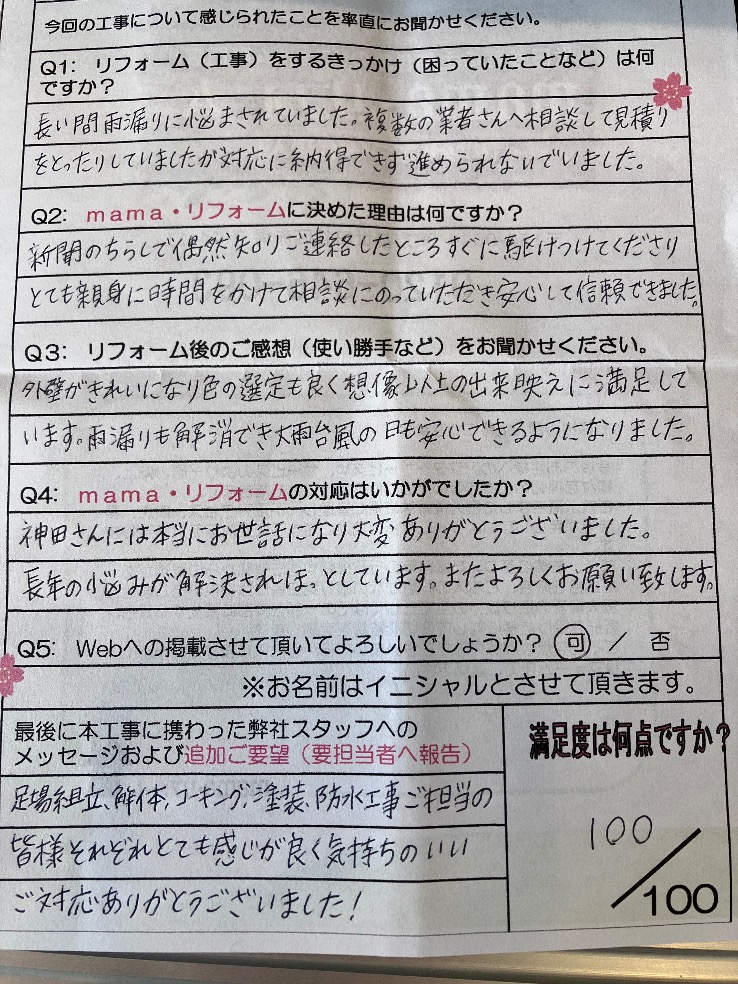 今回の工事について感じられたことを率直にお聞かせください。
Q1: リフォーム（工事）をするきっかけ（困っていたことなど）は何
ですか？
長い間雨漏りに悩まされていました。複数の業者さんへ相談して見積り
をとったりしていましたが対応に納得できず進められないでいました。
Q2: ｍａｍａ・リフォームに決めた理由は何ですか？
新聞のちらしで偶然知りご連絡したところすぐに駆けつけてくださり
とても親身に時間をかけて相談にのっていただき安心して信頼できました。
Q3: リフォーム後のご感想（使い勝手など）をお聞かせください。
外壁がきれいになり色の選定も良く想像以上の出来映えに満足して
います。雨漏りも解消でき大雨台風の日も安心できるようになりました。
Q4: ｍａｍａ・リフォームの対応はいかがでしたか？
神田さんには本当にお世話になり大変ありがとうございました。
長年の悩みが解決されほっとしています。またよろしくお願い致します。
Q5: Webへの掲載させて頂いてよろしいでしょうか？ 可 ／ 否
※お名前はイニシャルとさせて頂きます。
最後に本工事に携わった弊社スタッフへの
メッセージおよび追加ご要望（要担当者へ報告）
足場組立、解体、コーキング、塗装、防水工事ご担当の
皆様それぞれとても感じが良く気持ちのいい
ご対応ありがとうございました！
満足度は何点ですか？
100
／100